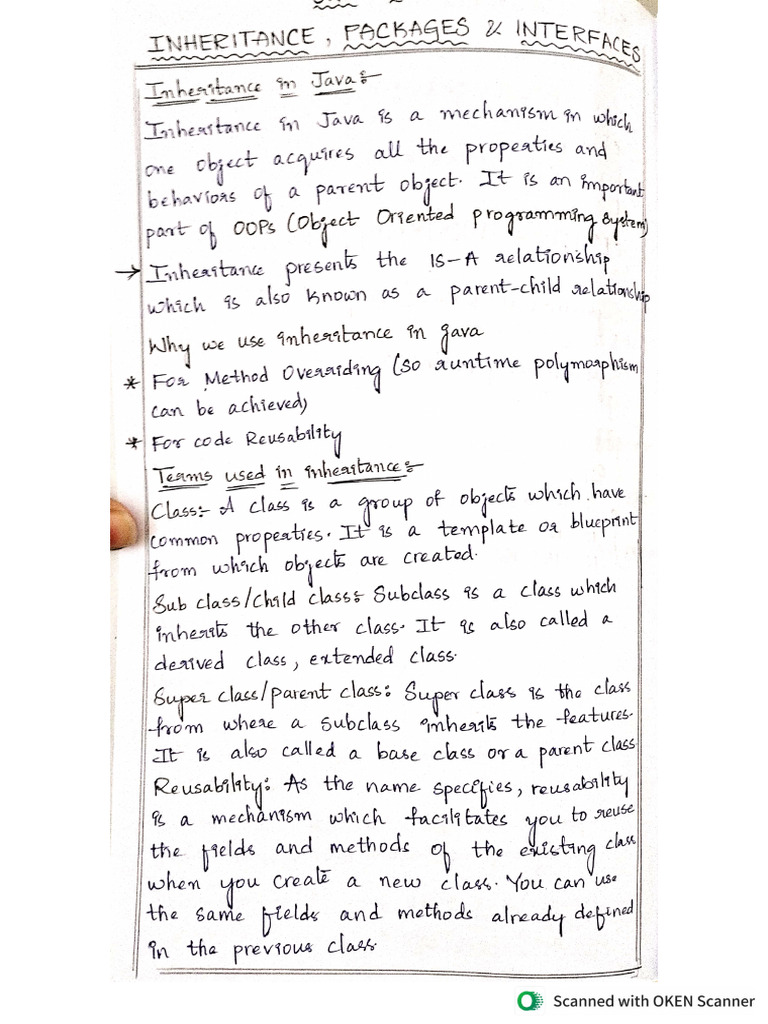 INHERITANCE, PACKAGES & INTERFACES
Inheritance in Java:-
Inheritance in Java is a mechanism in which
one object acquires all the properties and
behaviors of a parent object. It is an important
part of OOPs (Object Oriented programming system)
→ Inheritance presents the IS-A relationship
which is also known as a parent-child relationship
Why we use inheritance in java
* For Method Overriding (so runtime polymorphism
can be achieved)
* For code Reusability
Terms used in inheritance:-
Class:- A class is a group of objects which have
common properties. It is a template or blueprint
from which objects are created.
Sub class/child class: Subclass is a class which
inherits the other class. It is also called a
derived class, extended class.
Super class/parent class: Super class is the class
from where a subclass inherits the features.
It is also called a base class or a parent class
Reusability: As the name specifies, reusability
is a mechanism which facilitates you to reuse
the fields and methods of the existing class
when you create a new class. You can use
the same fields and methods already defined
in the previous class.
Scanned with OKEN Scanner